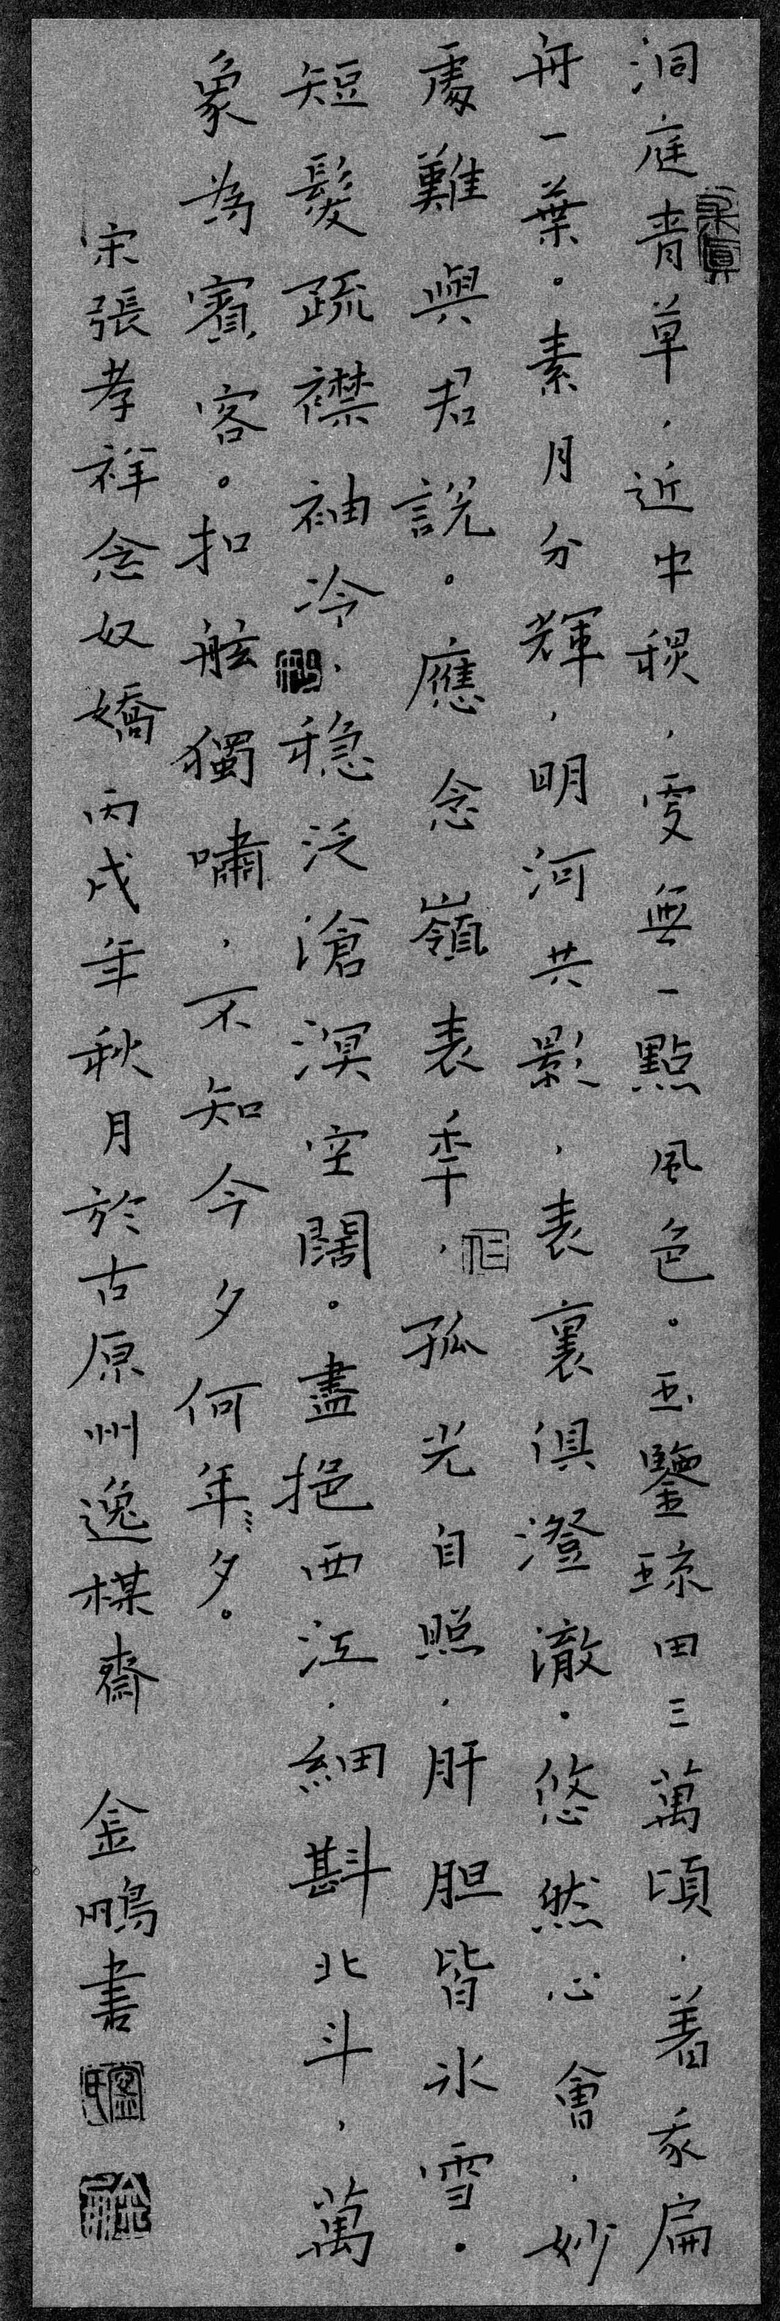 洞庭青草，近中穐，更無一點風色。玉鑒琼田三萬頃，着我扁
舟一葉。素月分輝，明河共影，表裏俱澄澈。悠然心會，妙
處難與君說。應念嶺表秊，孤光自照，肝胆皆冰雪。
短髮疏襟袖冷，稳泛滄溟空闊。盡挹西江，細斟北斗，萬
象為賓客。扣舷獨嘯，不知今夕何年〻夕。
宋張孝祥念奴嬌 丙戌年秋月於古原州逸楳齋 金鵬書